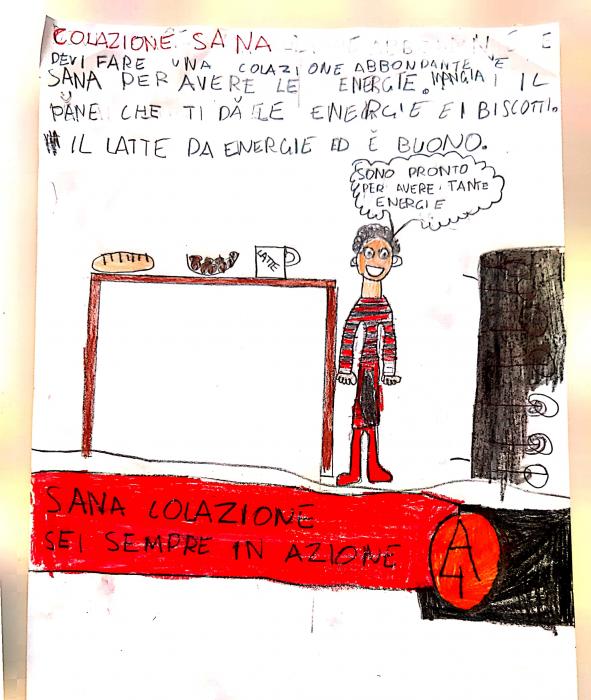 COLAZIONE SANA
DEVI FARE UNA COLAZIONE ABBONDANTE E
SANA PER AVERE LE ENERGIE. MANGIA IL
PANE CHE TI DÀ LE ENERGIE E I BISCOTTI.
IL LATTE DA ENERGIE ED È BUONO.
SONO PRONTO
PER AVERE TANTE
ENERGIE
LATTE
SANA COLAZIONE
SEI SEMPRE IN AZIONE
A
4